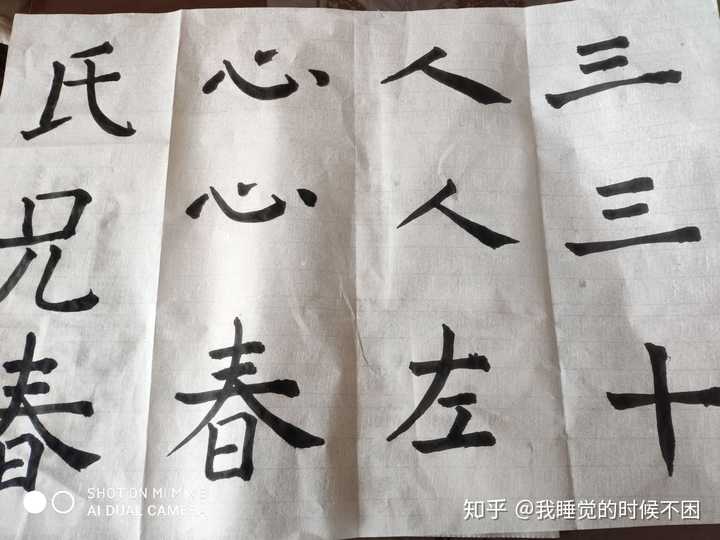 三三十
人人左
心心春
氏兄春
SHOT ON MI MIX
AI DUAL CAMERA
知乎 @我睡觉的时候不困